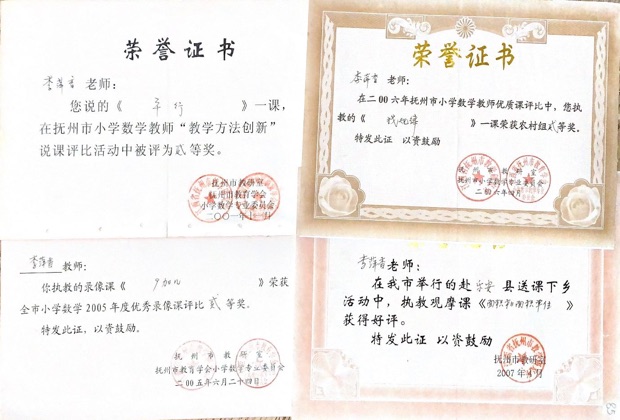 荣誉证书
老师：
您说的《 平行 》一课，
在抚州市小学数学教师“教学方法创新”
说课评比活动中被评为贰等奖。
抚州市教研室
抚州市教育学会
小学数学专业委员会
二〇〇一年十一月
荣誉证书
老师：
在二00六年抚州市小学数学教师优质课评比中，您执
教的《 》一课荣获农村组贰等奖。
特发此证 以资鼓励
抚州市教研室
抚州市小学数学专业委员会
二00六年四月
教师：
你执教的录像课《 9加几 》荣获
全市小学数学2005年度优秀录像课评比 贰 等奖。
特发此证，以资鼓励。
抚州市教研室
抚州市教育学会小学数学专业委员会
二00五年六月二十四日
老师：
在我市举行的赴 乐安 县送课下乡
活动中，执教观摩课《面积和面积单位》
获得好评。
特发此证 以资鼓励
抚州市教研室
2007年 月